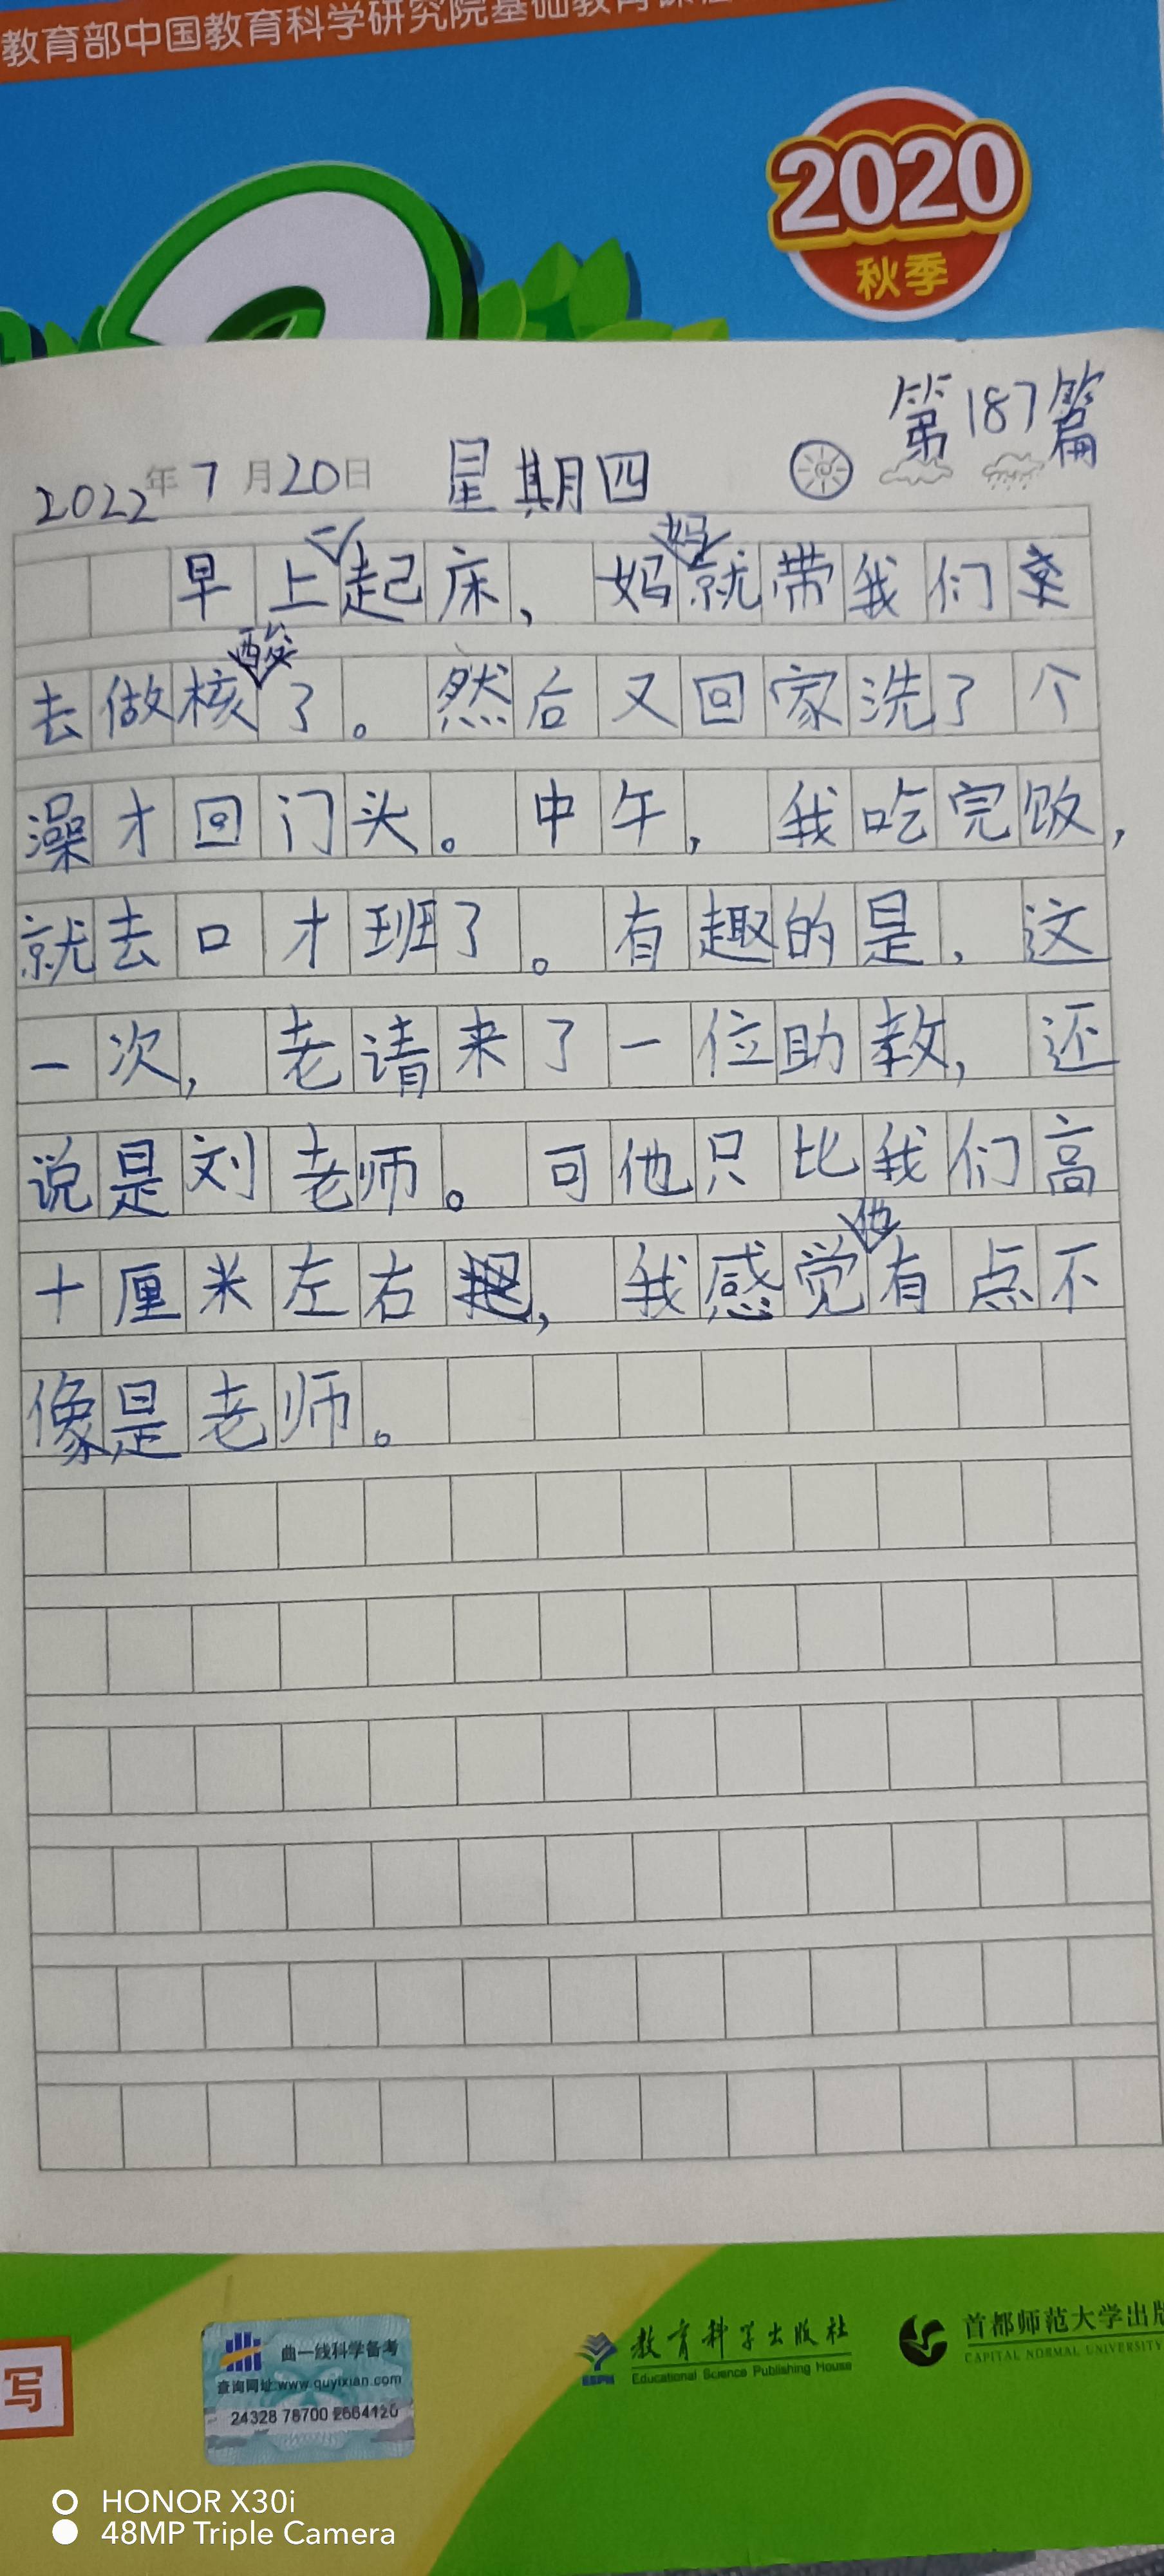 教育部中国教育科学研究院基础教育课
2020
秋季
第187篇
2022年7月20日 星期四
早上一起床，妈妈就带我们
去做核酸了。然后又回家洗了个
澡才回门头。中午，我吃完饭，
就去口才班了。有趣的是，这
一次，老请来了一位助教，还
说是刘老师。可他只比我们高
十厘米左右，我感觉他有点不
像是老师。
写
曲一线科学备考
查询网址:www.quyixian.com
24328 78700 2664120
教育科学出版社
ESPH
Educational Science Publishing House
首都师范大学出版
CAPITAL NORMAL UNIVERSITY
HONOR X30i
48MP Triple Camera